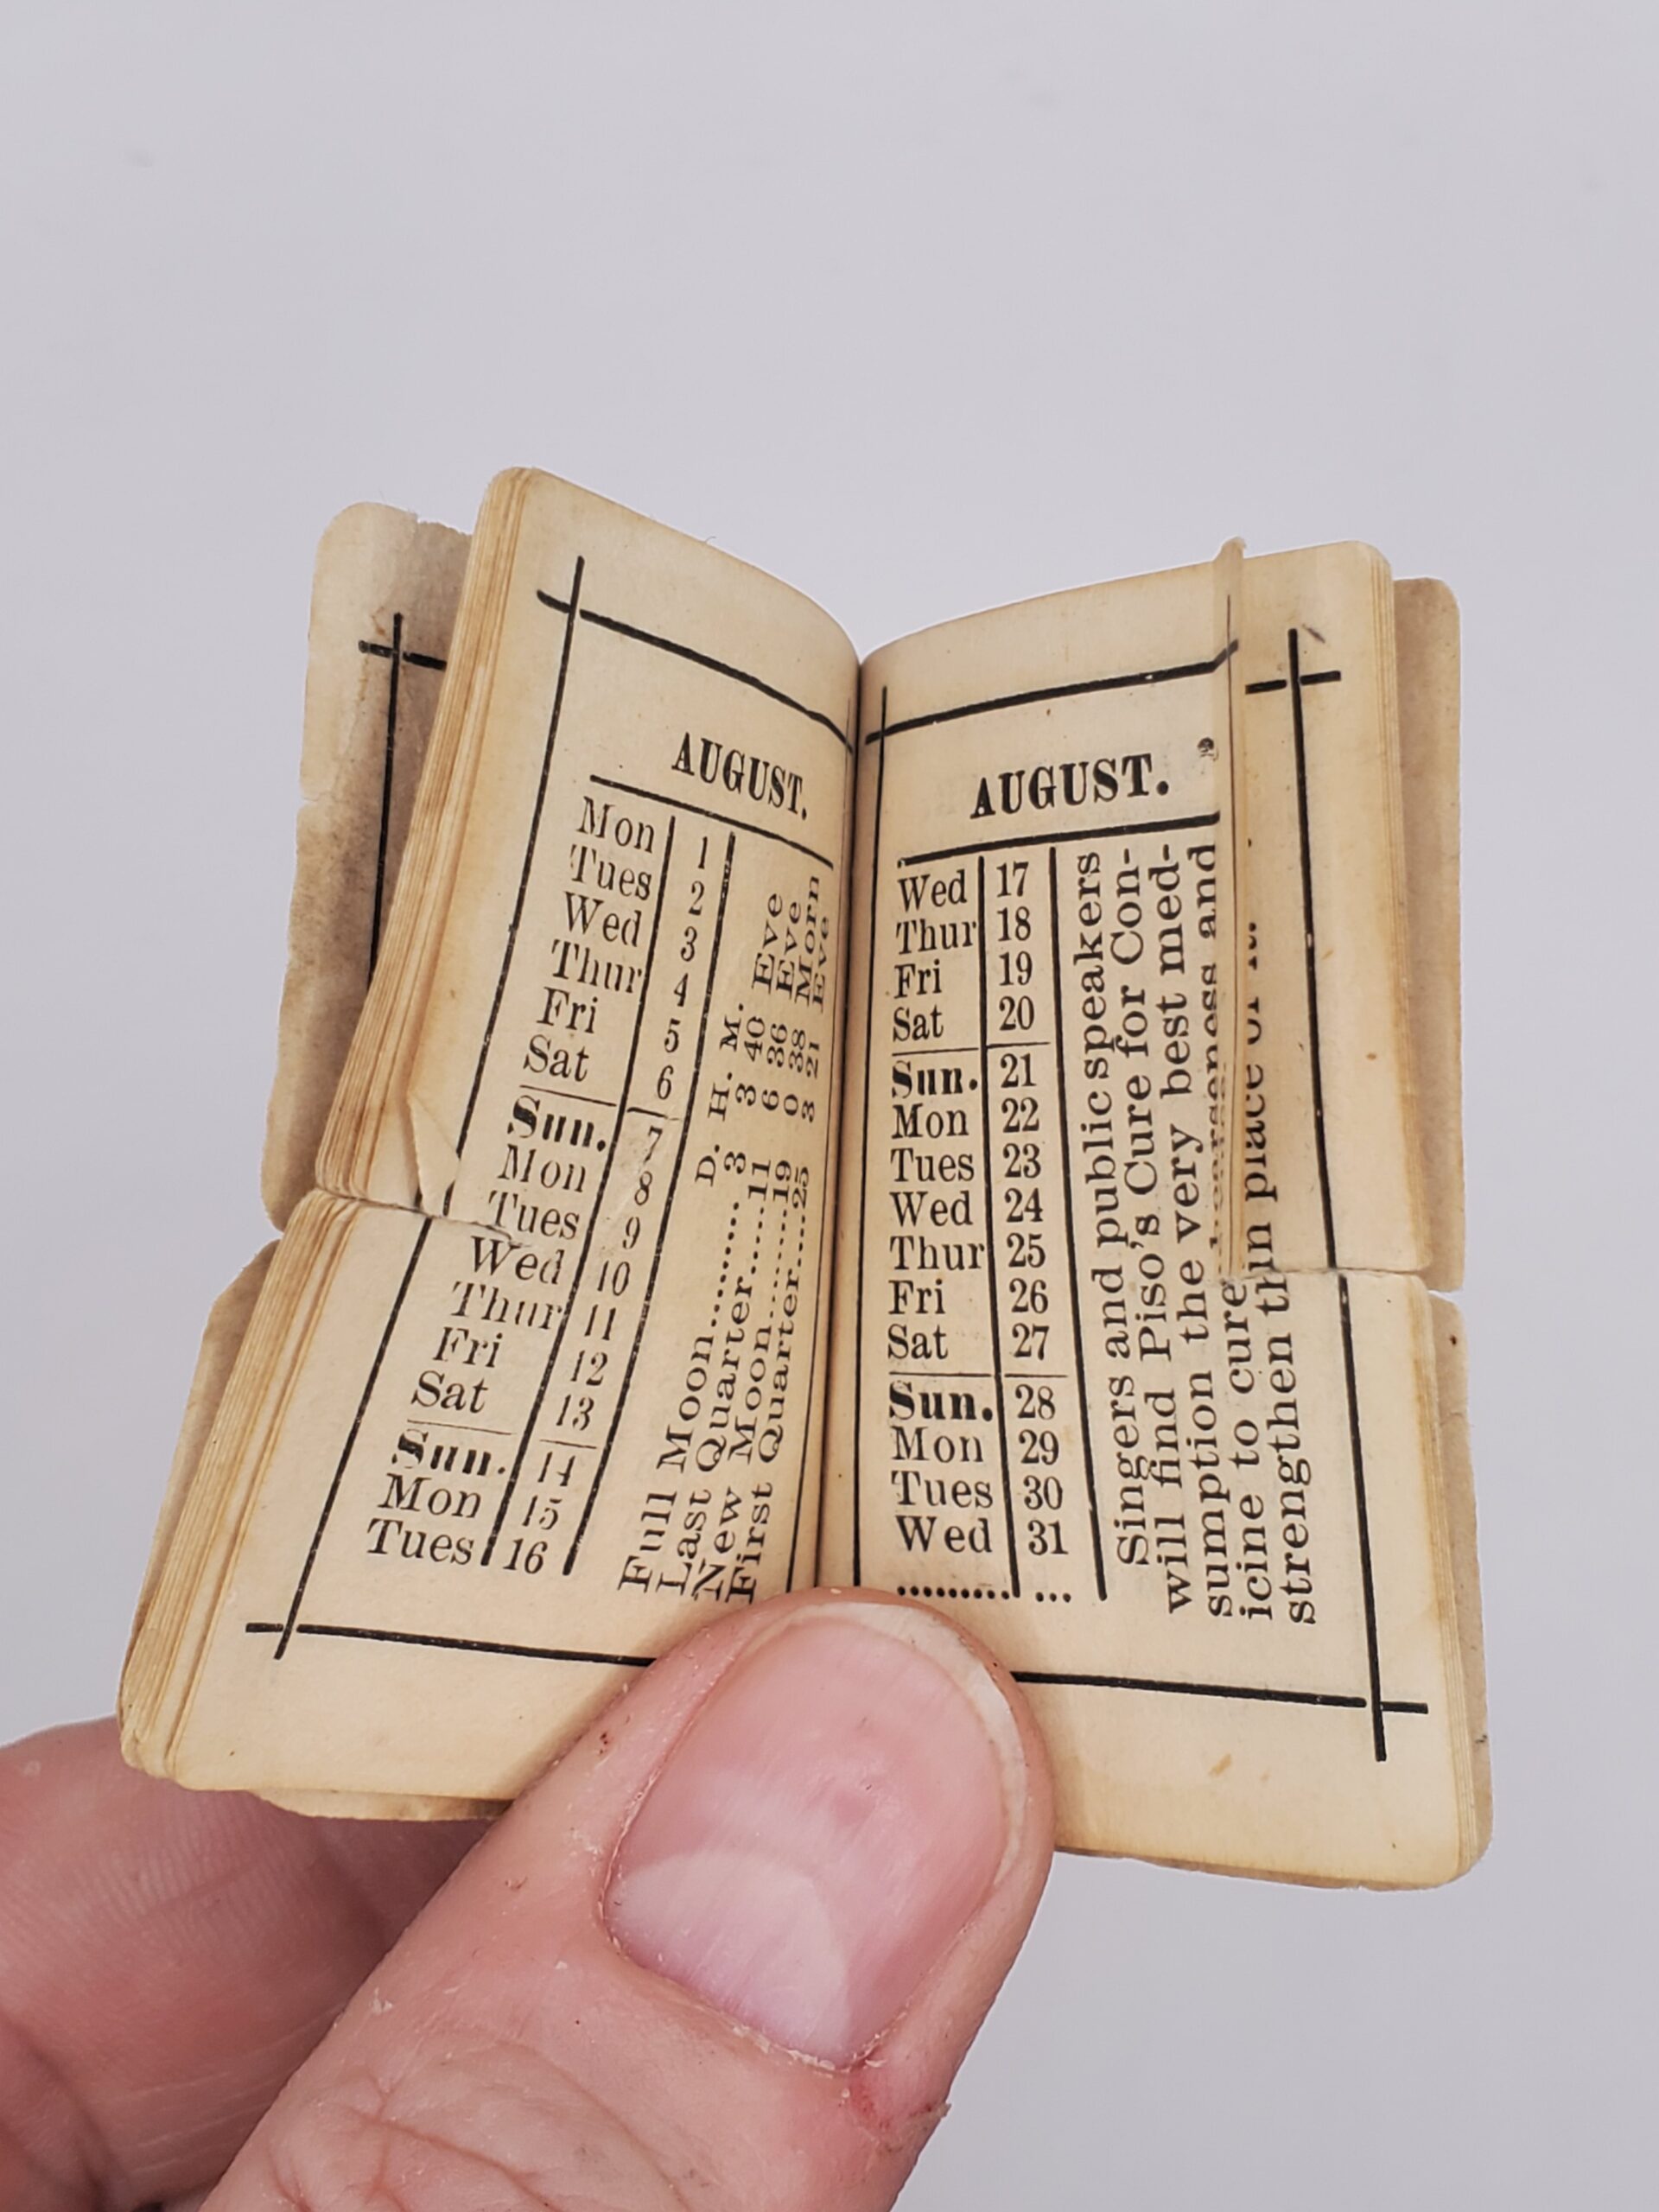 AUGUST.
Mon 1
Tues 2
Wed 3
Thur 4
Fri 5
Sat 6
Sun. 7
Mon 8
Tues 9
Wed 10
Thur 11
Fri 12
Sat 13
Sun. 14
Mon 15
Tues 16
D. H. M.
Full Moon.......... 3 3 40 Eve
Last Quarter.....11 6 36 Eve
New Moon........19 0 38 Morn
First Quarter....25 3 21 Eve
AUGUST.
Wed 17
Thur 18
Fri 19
Sat 20
Sun. 21
Mon 22
Tues 23
Wed 24
Thur 25
Fri 26
Sat 27
Sun. 28
Mon 29
Tues 30
Wed 31
.......... ...
Singers and public speakers
will find Piso's Cure for Con-
sumption the very best med-
icine to cure hoarseness and
strengthen the
in place of it.